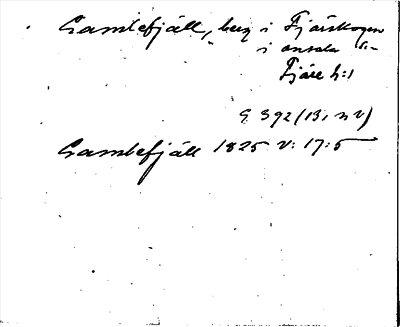 Gamlefjäll, berg i Fjärskogen
i onsala sn
Fjäre h:d
G 392 (13, n v)
Gamlefjäll 1825 v: 17:5